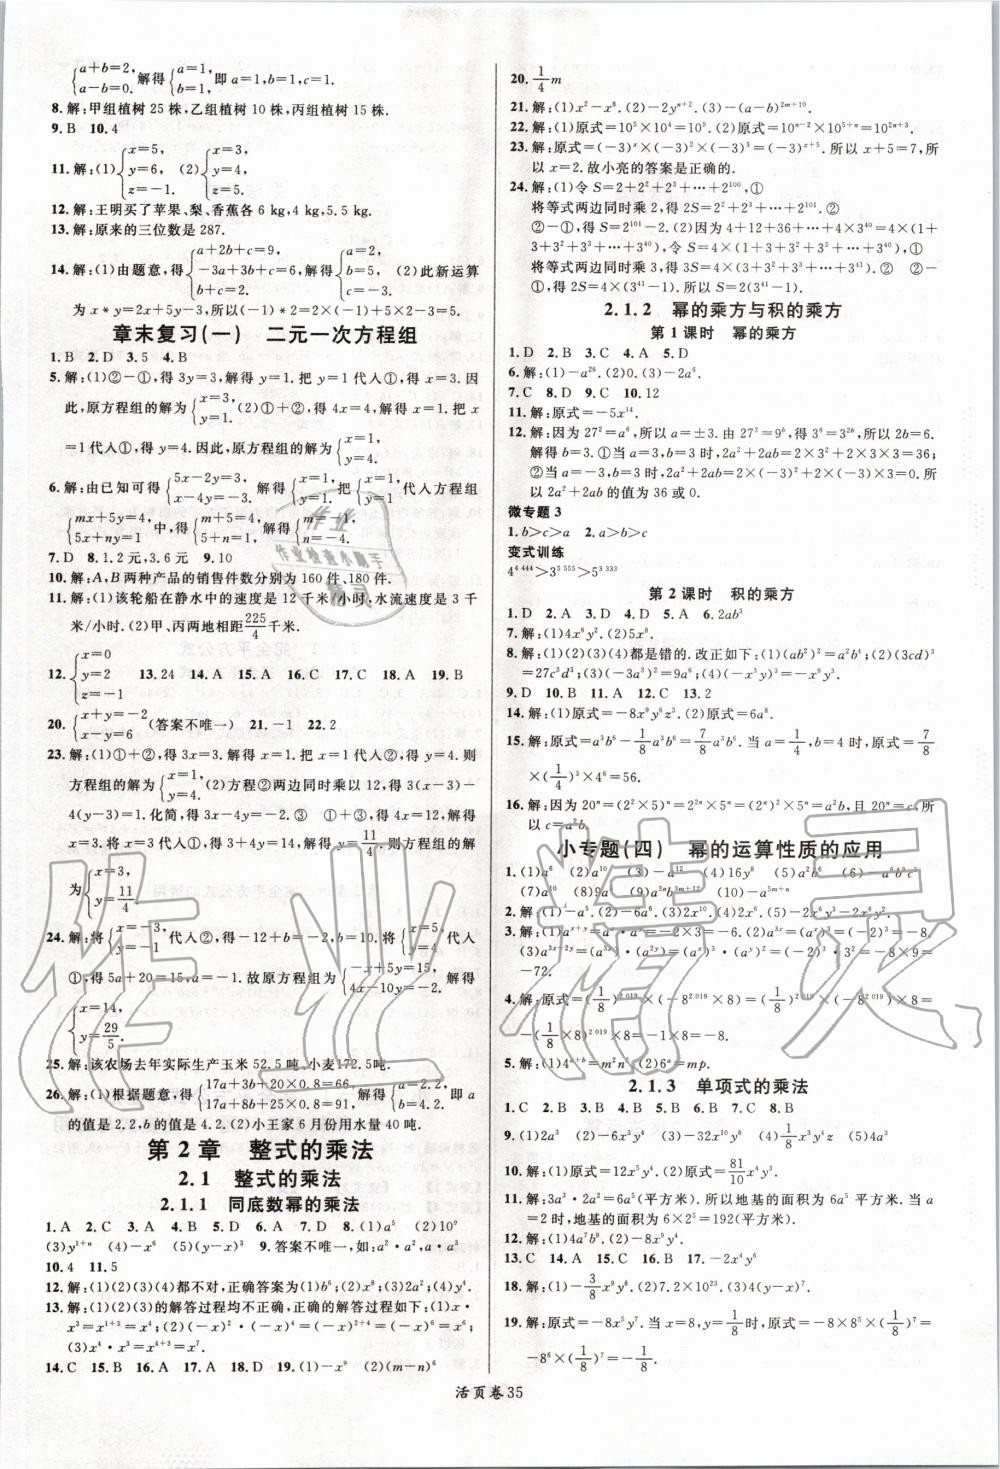 {a+b=2, a-b=0. 解得{a=1, b=1, 即a=1,b=1,c=1.
8.解:甲组植树25株,乙组植树10株,丙组植树15株.
9.B 10.4
11.解:(1){x=5, y=6, z=-1. (2){x=3, y=4, z=5.
12.解:王明买了苹果、梨、香蕉各6 kg,4 kg,5.5 kg.
13.解:原来的三位数是287.
14.解:(1)由题意,得{a+2b+c=9, -3a+3b+c=6, b+c=2. 解得{a=2, b=5, c=-3. (2)此新运算
为x*y=2x+5y-3,所以(-1)*2=2×(-1)+5×2-3=5.
章末复习(一) 二元一次方程组
1.B 2.D 3.5 4.B
5.解:(1)②-①,得3y=3,解得y=1.把y=1代入①,得x=3.因
此,原方程组的解为{x=3, y=1. (2)①+②,得4x=4,解得x=1.把x
=1代入①,得y=4.因此,原方程组的解为{x=1, y=4.
6.解:由已知可得{5x-2y=3, x-4y=-3. 解得{x=1, y=1. 把{x=1, y=1.代入方程组
{mx+5y=4, 5x+ny=1,中,得{m+5=4, 5+n=1, 解得{m=-1, n=-4.
7.D 8.1.2元,3.6元 9.10
10.解:A,B两种产品的销售件数分别为160件、180件.
11.解:(1)该轮船在静水中的速度是12千米/小时,水流速度是3千
米/小时.(2)甲、丙两地相距225/4千米.
12.{x=0 y=2 z=-1 13.24 14.A 15.A 16.D 17.C 18.A 19.B
20.{x+y=-2 x-y=6 (答案不唯一) 21.-1 22.2
23.解:(1)①+②,得3x=3.解得x=1.把x=1代入①,得y=4.则
方程组的解为{x=1, y=4. (2)方程②两边同时乘以12,得3(x-3)-
4(y-3)=1.化简,得3x-4y=-2. ③ ①+③,得4x=12,解得
x=3.将x=3代入①,得3+4y=14,解得y=11/4.则方程组的解
为{x=3, y=11/4.
24.解:将{x=-3, y=-1.代入②,得-12+b=-2,解得b=10.将{x=5, y=4.代入
①,得5a+20=15,a=-1.故原方程组为{-x+5y=15, 4x-10y=-2. 解得
{x=14, y=29/5.
25.解:该农场去年实际生产玉米52.5吨,小麦172.5吨.
26.解:(1)根据题意,得{17a+3b+20×0.8=66, 17a+8b+25×0.8=91, 解得{a=2.2, b=4.2. 即a
的值是2.2,b的值是4.2.(2)小王家6月份用水量40吨.
第2章 整式的乘法
2.1 整式的乘法
2.1.1 同底数幂的乘法
1.A 2.C 3.B 4.A 5.D 6.A 7.D 8.(1)a⁵ (2)10⁹
(3)y¹⁺ⁿ (4)-x⁶ 9.答案不唯一,如:a²·a²,a·a³
10.4 11.5
12.解:(1)(2)(3)(4)都不对,正确答案为(1)b⁶;(2)x⁸;(3)2b⁴;(4)y⁴.
13.解:(1)(2)(3)的解答过程均不正确,正确的解答过程如下:(1)x·
x³=x¹⁺³=x⁴;(2)(-x)²·(-x)⁴=(-x)²⁺⁴=(-x)⁶=x⁶;
(3)x⁴·x³=x⁴⁺³=x⁷.
14.C 15.B 16.A 17.A 18.D 19.(1)-x⁹ (2)(m-n)⁶
20.1/4m
21.解:(1)x²-x⁸.(2)-2yⁿ⁺².(3)-(a-b)²ᵐ⁺¹⁰.
22.解:(1)原式=10⁵×10⁴=10⁹.(2)原式=10ⁿ⁻²×10⁵⁺ⁿ=10²ⁿ⁺³.
23.解:原式=(-3)ˣ×(-3)²×(-3)³=(-3)ˣ⁺⁵.所以x+5=7,所
以x=2.故小亮的答案是正确的.
24.解:(1)令S=2+2²+2³+…+2¹⁰⁰,①
将等式两边同时乘2,得2S=2²+2³+2⁴+…+2¹⁰¹.②
②-①,得S=2¹⁰¹-2.(2)因为4+12+36+…+4×3⁴⁰=4×(1+
3+3²+3³+…+3⁴⁰),令S=4×(1+3+3²+3³+…+3⁴⁰),①
将等式两边同时乘3,得3S=4×(3+3²+3³+…+3⁴¹).②
②-①,得2S=4×(3⁴¹-1).所以S=2(3⁴¹-1).
2.1.2 幂的乘方与积的乘方
第1课时 幂的乘方
1.D 2.B 3.C 4.A 5.D
6.解:(1)-a²⁶.(2)0.(3)-2a⁶.
7.C 8.D 9.C 10.12
11.解:原式=-5x¹⁴.
12.解:因为27²=a⁶,所以a=±3.由27²=9ᵇ,得3⁶=3²ᵇ,所以2b=6.
解得b=3.①当a=3,b=3时,2a²+2ab=2×3²+2×3×3=36;
②当a=-3,b=3时,2a²+2ab=2×(-3)²+2×(-3)×3=0.所
以2a²+2ab的值为36或0.
微专题3
1.b>c>a 2.a>b>c
变式训练
4⁴ ⁴⁴⁴>3⁵ ⁵⁵⁵>5³ ³³³
第2课时 积的乘方
1.D 2.A 3.D 4.D 5.A 6.2ab³
7.解:(1)4x⁶y².(2)16b⁸.
8.解:(1)(2)(3)(4)都是错的.改正如下:(1)(ab²)²=a²b⁴;(2)(3cd)³
=27c³d³;(3)(-3a³)²=9a⁶;(4)(-x³y)³=-x⁹y³.
9.D 10.B 11.A 12.C 13.2
14.解:(1)原式=-8x⁹y⁶z³.(2)原式=6a⁸.
15.解:原式=a³b⁶-1/8a³b⁶=7/8a³b⁶.当a=1/4,b=4时,原式=7/8
×(1/4)³×4⁶=56.
16.解:因为20ⁿ=(2²×5)ⁿ=2²ⁿ×5ⁿ=(2ⁿ)²×5ⁿ=a²b,且20ⁿ=c,所
以c=a²b.
小专题(四) 幂的运算性质的应用
1.(1)a⁶ (2)a¹⁰ (3)-a¹² (4)16y⁸ (5)a²b⁶ (6)-a⁶b⁹c³
(7)a¹⁰ (8)9a
3.解:(1)
-72.
5.解:(1)4ᵃ⁺ᵇ=4ᵃ·4ᵇ=mn.(2)6ᵃ=mp.
2.1.3 单项式的乘法
1.C 2.B 3.B 4.D 5.D 6.B 7.A 8.C
9.(1)2a³ (2)-6x³ (3)x³y³z (4)5a³
10.解:(1)原式=12x⁵y³.(2)原式=81/10x⁴y⁴.
11.解:3a²×2a³=6a⁵(平方米).所以地基的面积为6a⁵平方米.当a
=2时,地基的面积为6×2⁵=192(平方米).
12.解:(1)4a⁷b⁹.(2)-x³y⁶.
13.C 14.A 15.C 16.B 17.-2x⁴y⁶
18.解:(1)-3/8x⁹y⁶.(2)7.2×10²³.(3)24(y-x)⁷.
19.解:原式=-8x⁶y⁷.当x=8,y=1/8时,原式=-8×8⁵×(1/8)⁷=
-8⁶×(1/8)⁷=-1/8.
活页卷35
作业精灵